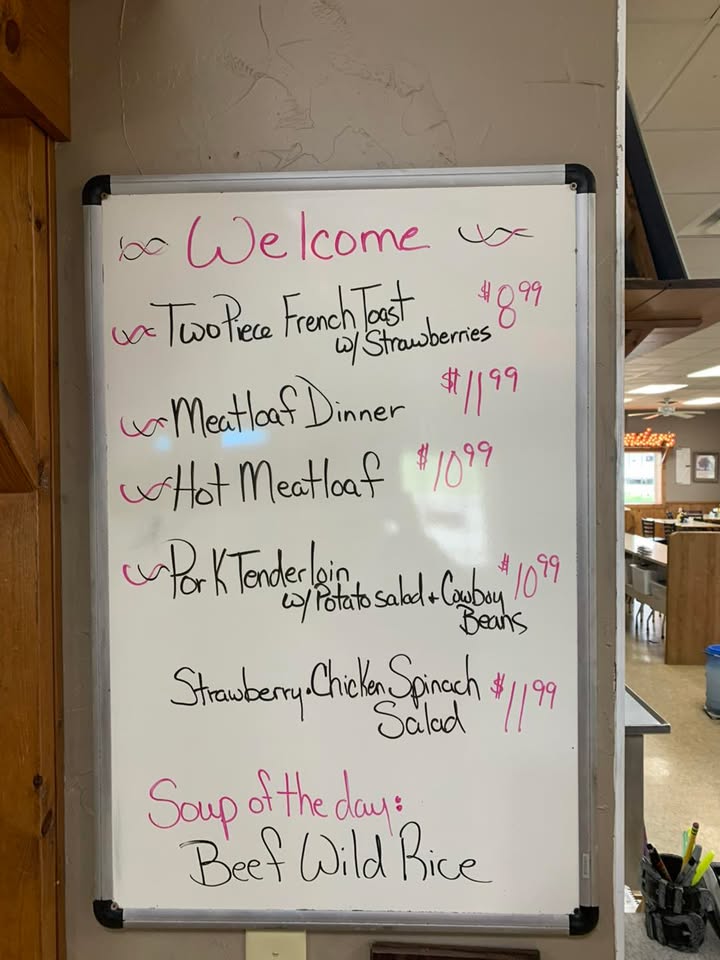 Welcome
Two Piece French Toast $8.99
w/ Strawberries
Meatloaf Dinner $11.99
Hot Meatloaf $10.99
Pork Tenderloin $10.99
w/ Potato salad + Cowboy
Beans
Strawberry • Chicken Spinach $11.99
Salad
Soup of the day:
Beef Wild Rice